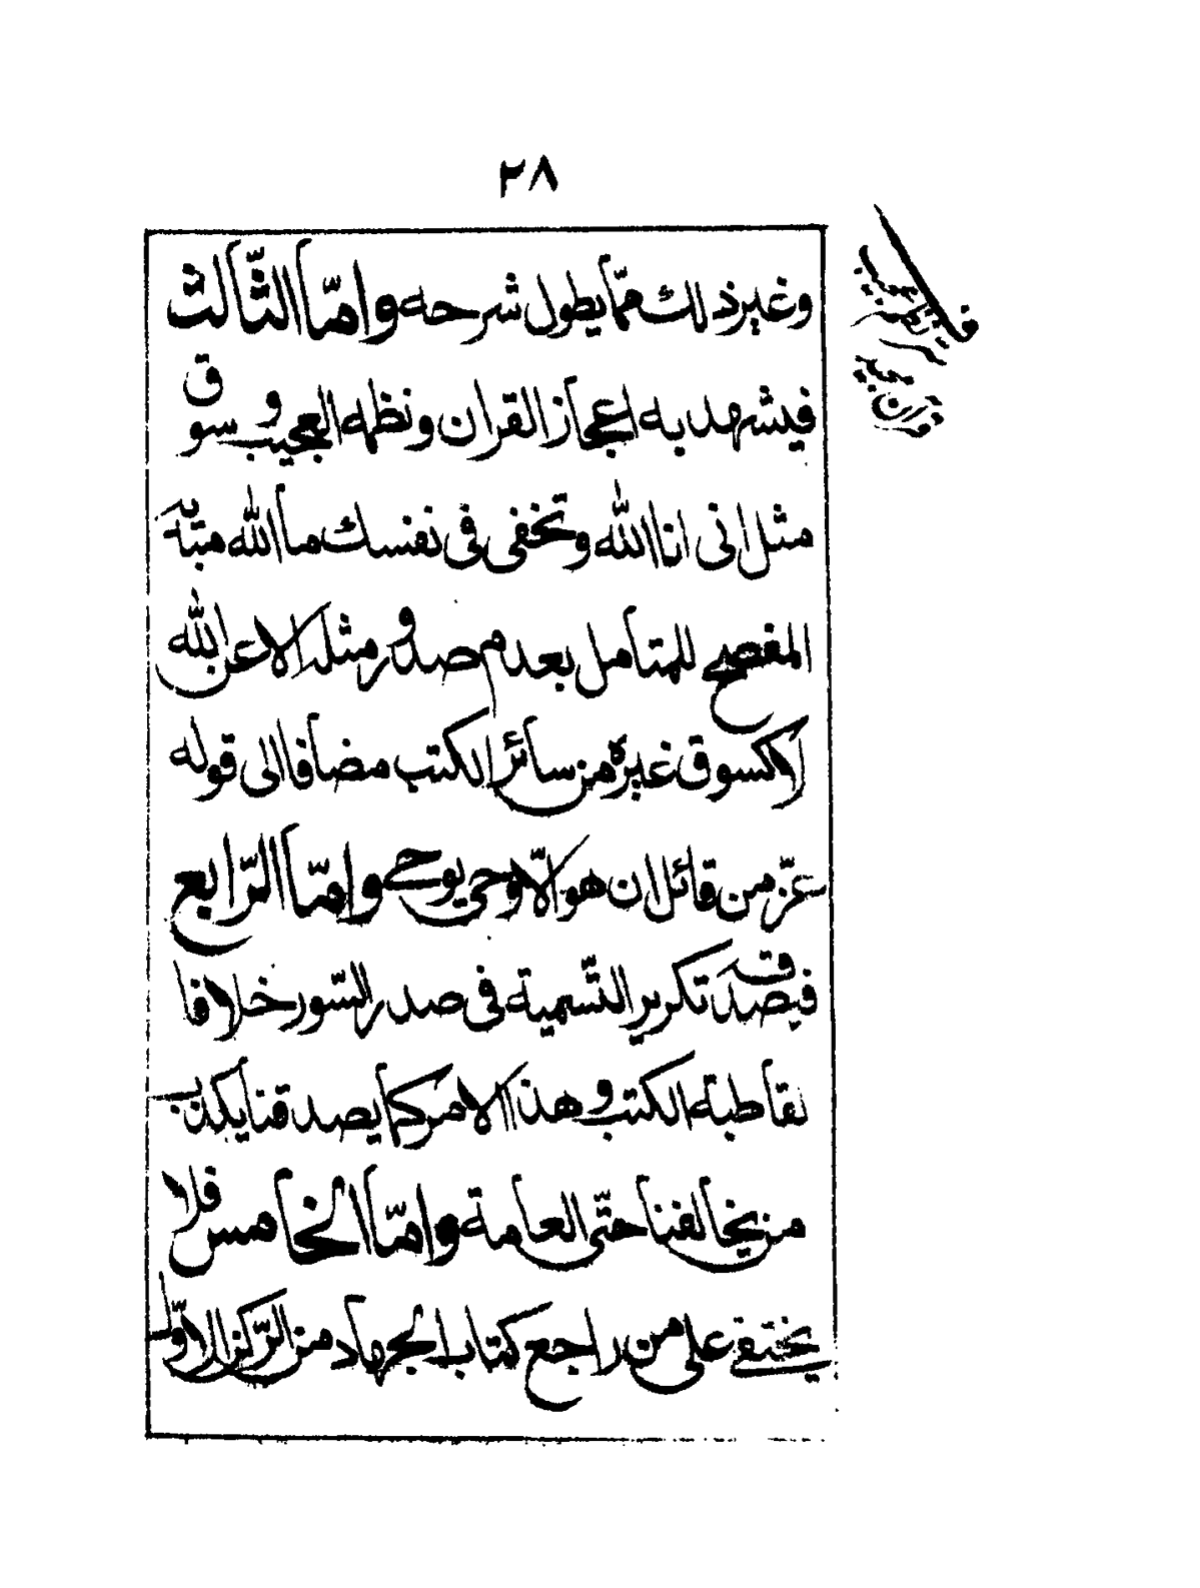 ٢٨
وغير ذلك ممّا يطول شرحه وامّا الثّالث
فيشهد به اعجاز القران ونظمه العجيب وسوق
مثل انى انا الله وتخفى فى نفسك ما الله مبديه
المفصح للمتأمل بعدم صدور مثله الا عن الله
لا كسوق غيره من سائر الكتب مضافا الى قوله
عزّ من قائل ان هو الّا وحى يوحى وامّا الرّابع
فيصدقه تكرير التّسمية فى صدر السّور خلافا
لقاطبة الكتب وهذا الامر كما يصدقنا يكذب
من يخالفنا حتّى العامة وامّا الخامس فلا
يختفى على من راجع كتاب الجهاد من الرّكن الاوّل
قرآن مجيد